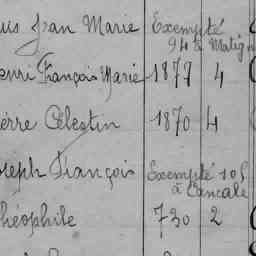 us Jean Marie Exempté
94 à Matig
enri François Marie 1877 4
erre Célestin 1870 4
oseph François Exempté 105
à Cancale
héophile 730 2